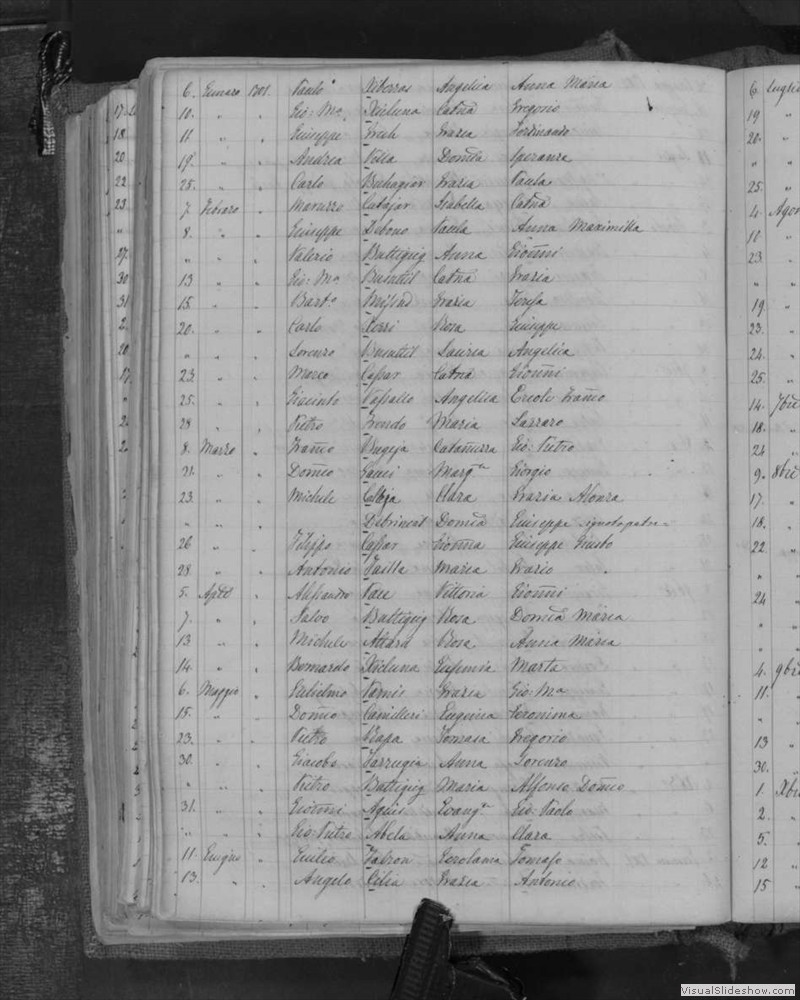 6. Gennaro 1701. Paulo Xiberras Angelica Anna Maria
10. " " Gio: Ma. Xicluna Catna Gregorio
11. " " Giuseppe Grech Grazia Ferdinando
19. " " Andrea Vella Domca Speranza
25. " " Carlo Buhagiar Grazia Paula
7. Febraro " Maruzzo Cutajar Isabella Catna
8. " " Giuseppe Debono Paula Anna Maximilla
" " " Valerio Buttigieg Anna Gionni
13 " " Gio: Ma Busuttil Catna Grazia
15. " " Barto Mifsud Grazia Teresa
20. " " Carlo Xerri Rosa Giuseppe
" " " Lorenzo Busuttil Laurea Angelica
23. " " Marco Caxar Catna Gionni
25. " " Giacinto Vassallo Angelica Ercole Franco
28 " " Pietro Fondo Maria Lazzaro
8. Marzo " Franco Bugeja Catarinuzza Gio: Pietro
21. " " Domco Gauci Margta Giorgio
23. " " Michele Calleja Clara Grazia Alonza
" " " Debrincat Domca Giuseppe ignoto patre
26 " " Filippo Caxar Gionna Giuseppe Giusto
28 " " Antonio Sailla Maria Grazio
5. Aple " Alessandro Pace Vittoria Gionni
7. " " Salvo Buttigieg Rosa Domca Maria
13 " " Michele Attard Rosa Anna Maria
14. " " Bernardo Xicluna Eufemia Marta
6. Maggio " Gulielmo Farnis Grazia Gio: Ma
15. " " Domco Camilleri Eugenia Geronima
23. " " Pietro Grapa Tomasa Gregorio
30. " " Giacobo Farrugia Anna Lorenzo
" " " Pietro Buttigieg Maria Alfonso Domco
31. " " Gionni Agius Evangta Gio: Paolo
" " " Gio: Pietro Abela Anna Clara
11. Giugno " Giulio Fabron Gerolama Tomaso
13. " " Angelo Cilia Grazia Antonio
6. Luglio
19 "
20. "
" "
25. "
4. Agos
10 "
23 "
" "
19. "
23. "
24. "
25. "
14. 7bre
18. "
24 "
9. 8bre
17. "
18. "
22. "
" "
24 "
" "
" "
4. 9bre
11. "
" "
13 "
30. "
1. Xbre
2. "
5. "
12 "
15 "
17.
18.
20
22
23.
"
27.
30
31
2.
20.
17.
VisualSlideshow.com